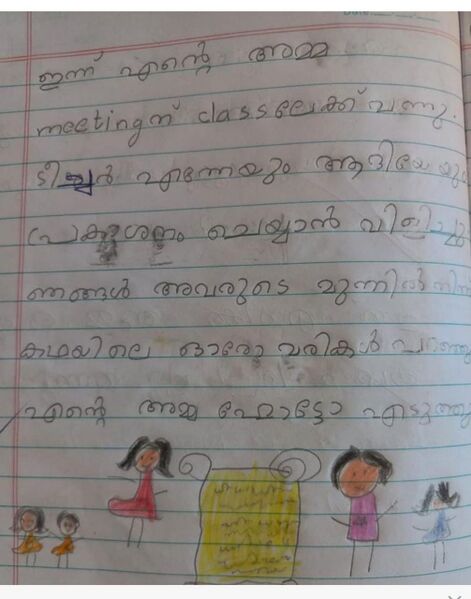 ഇന്ന് എന്റെ അമ്മ
meetingന് classലേക്ക് വന്നു.
ടീച്ചർ എന്നേയും ആദിയേയും
പ്രകാശനം ചെയ്യാൻ വിളിച്ചു
ഞങ്ങൾ അവരുടെ മുന്നിൽ നിന്ന്
കഥയിലെ ഓരോ വരികൾ പറഞ്ഞു
എന്റെ അമ്മ ഫോട്ടോ എടുത്തു